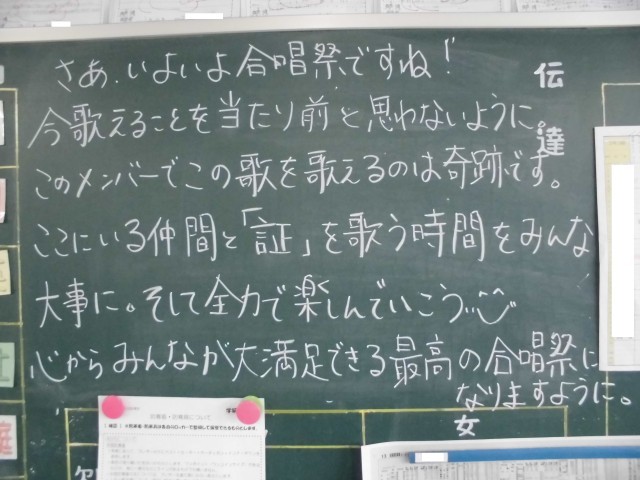 さあ、いよいよ合唱祭ですね!
今歌えることを当たり前と思わないように。
このメンバーでこの歌を歌えるのは奇跡です。
ここにいる仲間と「証」を歌う時間をみんな
大事に。そして全力で楽しんでいこう
心からみんなが大満足できる最高の合唱祭に
なりますように。
伝達
女
欠